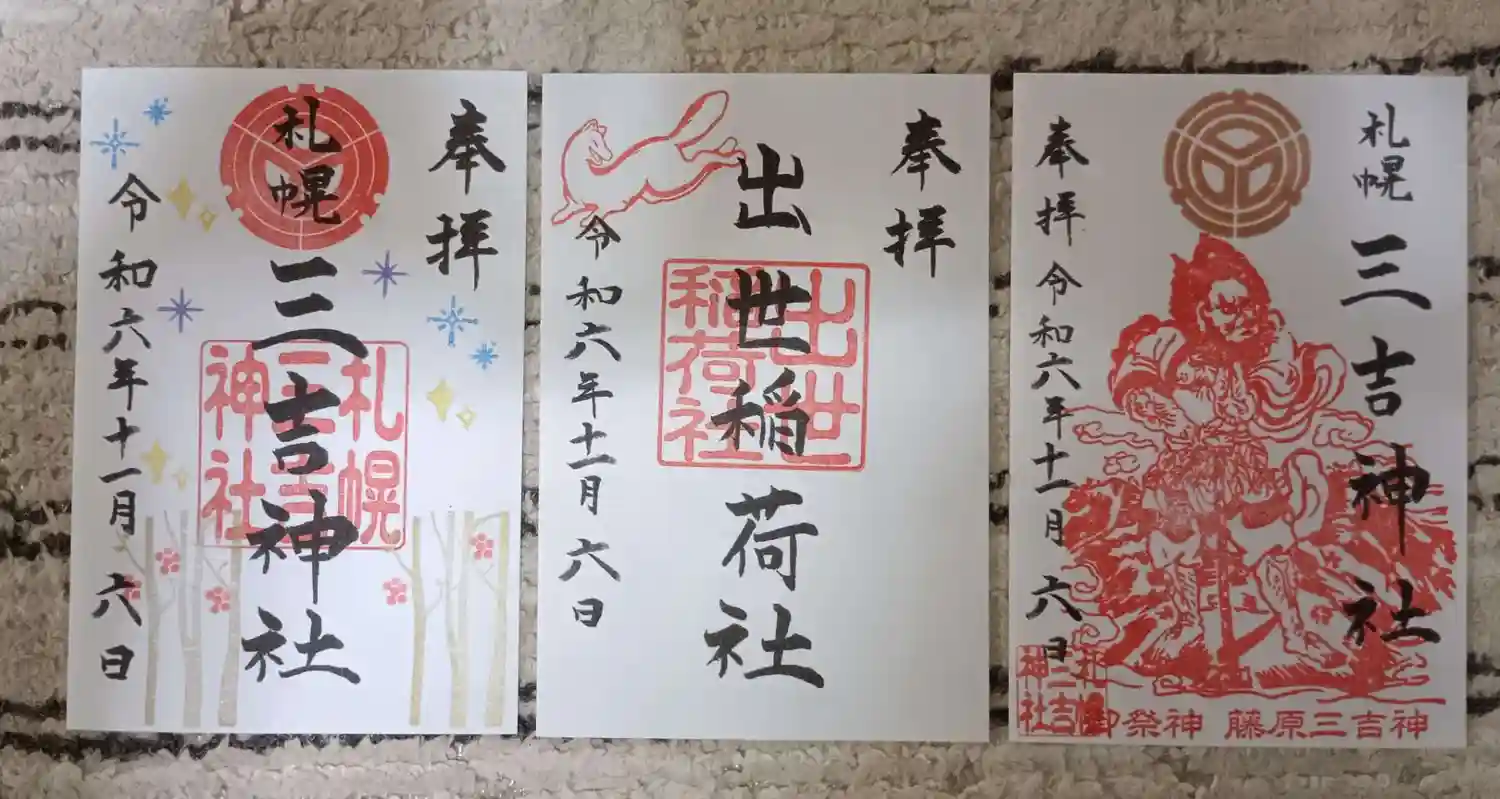 奉拝
札幌
三吉神社
札幌
三吉
神社
令和六年十一月六日
奉拝
出世稲荷社
出世
稲荷社
令和六年十一月六日
札幌
三吉神社
奉拝
令和六年十一月六日
札幌
三吉
神社
御祭神 藤原三吉神